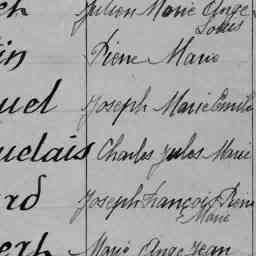 Julien Marie Ange
Louis
in Pierre Marie
uel Joseph Marie Emile
uclais Charles Jules Marie
rd Joseph François Pierre
Marie
Marie Ange Jean